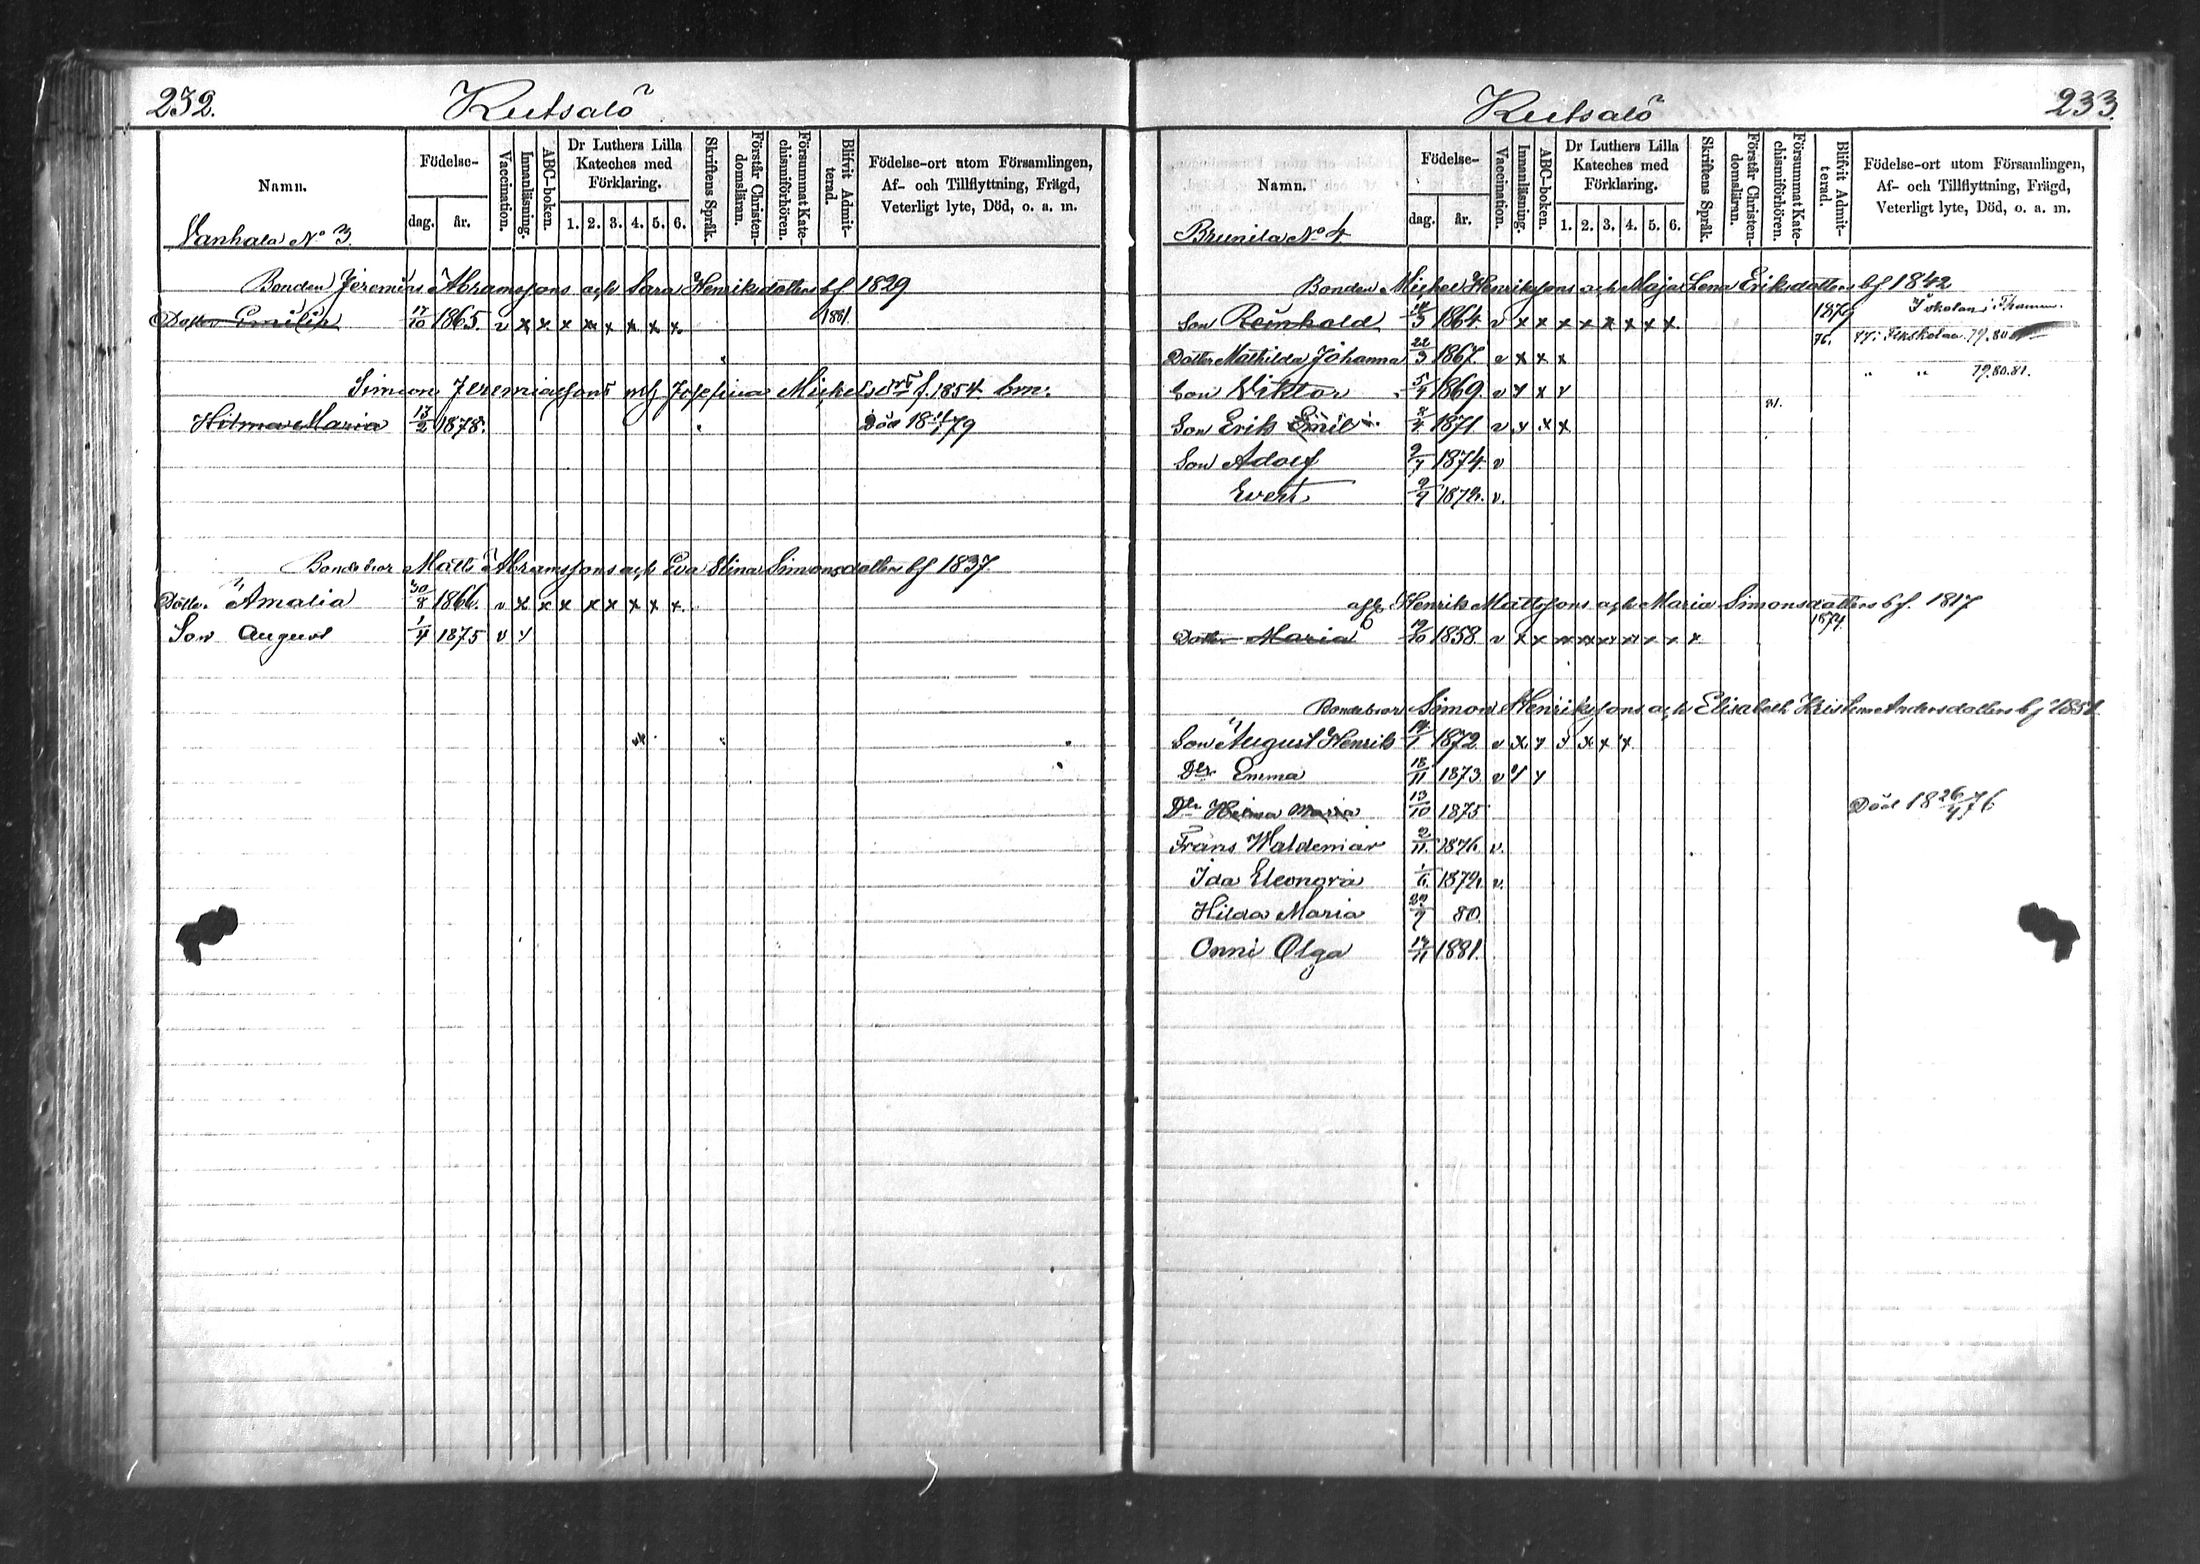 232.
Kutsalö
Namn.
Födelse-
dag.
år.
Vaccination.
Innanläsning.
ABC-boken.
Dr Luthers Lilla
Kateches med
Förklaring.
1. 2. 3. 4. 5. 6.
Skriftens Språk.
Förstår Christen-
domsläran.
Försummat Kate-
chismiförhören.
Blifvit Admit-
terad.
Födelse-ort utom Församlingen,
Af- och Tillflyttning, Frägd,
Veterligt lyte, Död, o. a. m.
Vanhala No 3.
Bonden Jeremias Abramssons och Sara Henriksdotters bf 1829
Dotter Emilia 17/10 1865. v x x x x x x x x 1881.
Simeon Jeremiassons och Josefina Mickelsdrs f. 1854 bm:
Hilma Maria 13/2 1878. Död 79
Bondebror Matts Abramssons och Eva Stina Simonsdotters bf 1837
Dotter Amalia 30/8 1866. v x x x x x x x x
Son August 1/4 1875 v y
233.
Kutsalö
Namn.
Födelse-
dag.
år.
Vaccination.
Innanläsning.
ABC-boken.
Dr Luthers Lilla
Kateches med
Förklaring.
1. 2. 3. 4. 5. 6.
Skriftens Språk.
Förstår Christen-
domsläran.
Försummat Kate-
chismiförhören.
Blifvit Admit-
terad.
Födelse-ort utom Församlingen,
Af- och Tillflyttning, Frägd,
Veterligt lyte, Död, o. a. m.
Brunila No 4
Bonden Michel Henrikssons och Maja Lena Eriksdotters bf 1842
Son Reinhold 1864. v x x x x x x x x 1879 I skolan i
Dotter Mathilda Johanna 22/3 1867. v x x x 76. 77. 79. 80
Son Viktor 5/4 1869. v y x y " " 79. 80. 81.
Son Erik Emil 8/4 1871 v x x x 81.
Son Adolf 9/7 1874 v
Evert v.
Henrik Mattssons och Maria Simonsdotters bf. 1817
Dotter Maria 19/10 1858. v x x x x x x x x x 1874.
Bondebror Simon Henrikssons och Elisabeth Kristina Andersdotters bf 1851
Son August Henrik 1872 v x y y x x x
Dtr Emma 18/11 1873 v y y
Dtr Hilma Maria 13/10 1875 Död 18 26/4 76
Frans Waldemar 2/11 1876 v.
Ida Eleonora v.
Hilda Maria 80.
Onni Olga 1881.